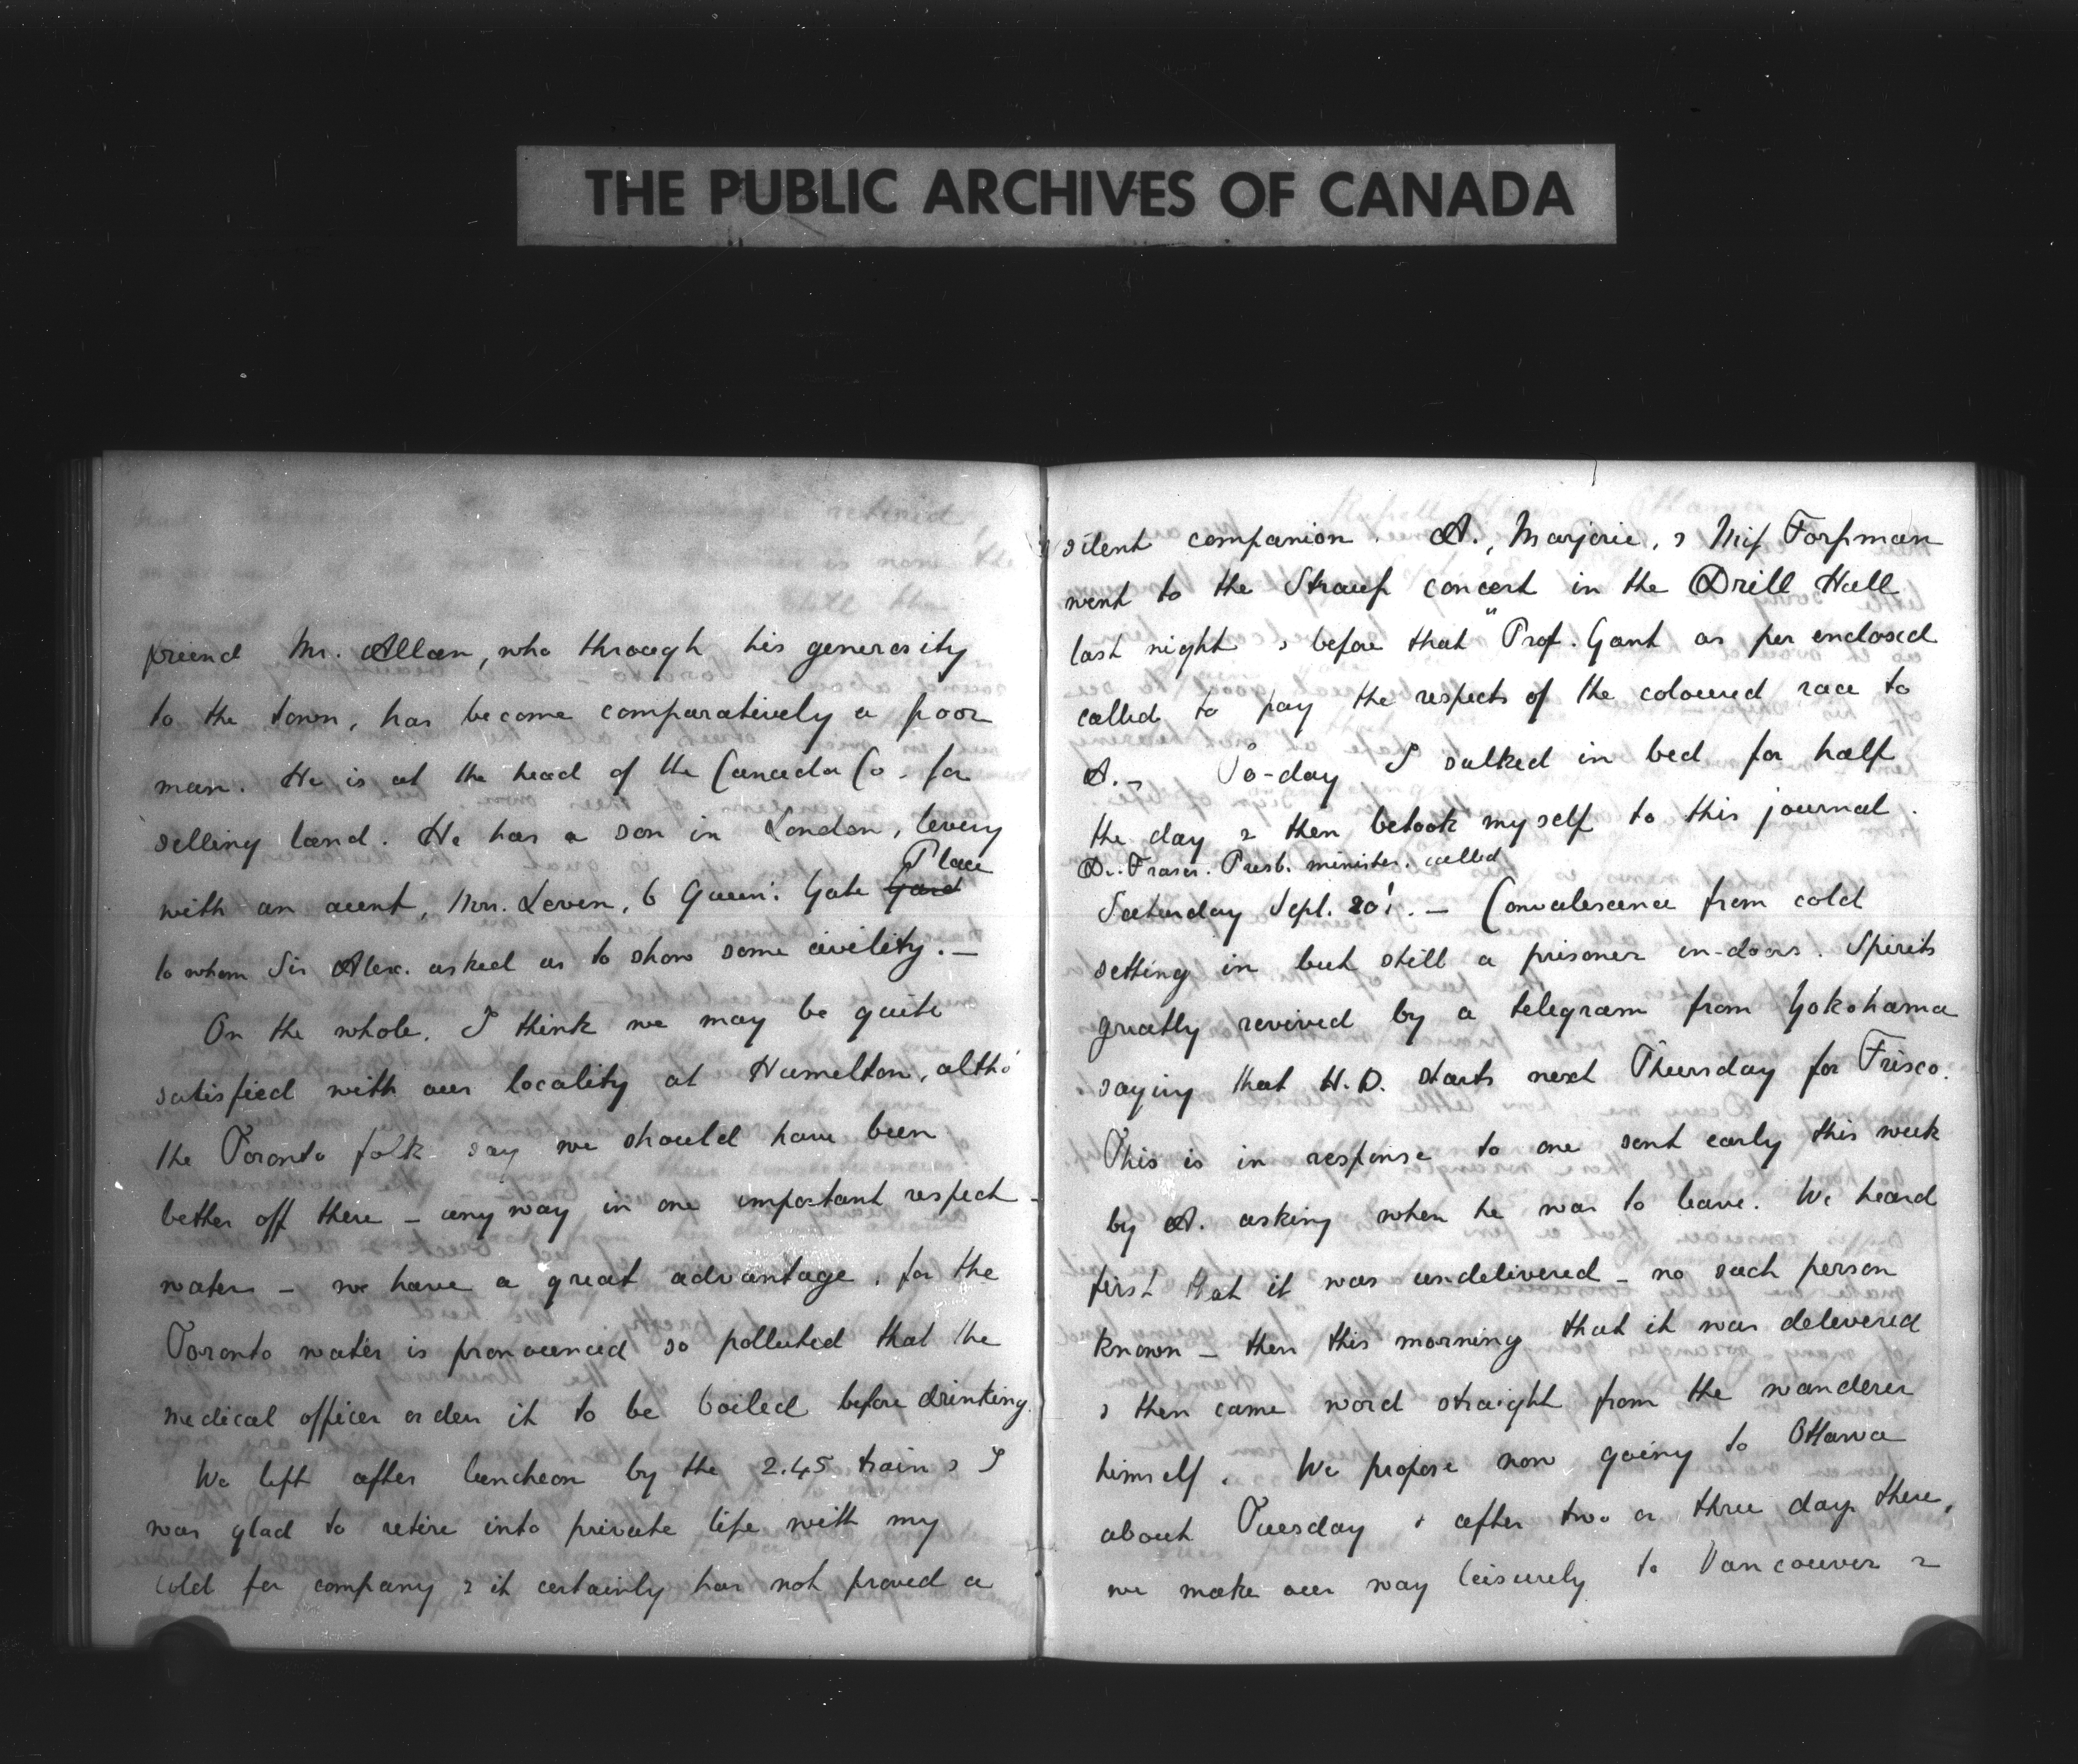 THE PUBLIC ARCHIVES OF CANADA
friend Mr. Allan, who through his generosity
to the town, has become comparatively a poor
man. He is at the head of the Canada Co. for
selling land. He has a son in London, living
with an aunt, Mrs. Leven, 6 Queen's Gate Gard Place
to whom Sir Alex. asked us to show some civility. —
On the whole, I think we may be quite
satisfied with our locality at Hamilton, altho'
the Toronto folk say we should have been
better off there – any way in one important respect –
water – we have a great advantage, for the
Toronto water is pronounced so polluted that the
medical officer orders it to be boiled before drinking.
We left after luncheon by the 2.45 train & I
was glad to retire into private life with my
cold for company & it certainly has not proved a
silent companion. A., Marjorie, & Miss Forssman
went to the Strauss concert in the Drill Hall
last night & before that "Prof. Gant as per enclosed
called to pay the respects of the coloured race to
A. – To-day I sulked in bed for half
the day & then betook myself to this journal.
Dr. Fraser. Presb. minister. called
Saturday Sept. 20! – Convalescence from cold
setting in but still a prisoner in-doors. Spirits
greatly revived by a telegram from Yokohama
saying that H.D. starts next Thursday for Frisco.
This is in response to one sent early this week
by A. asking when he was to leave. We heard
first that it was undelivered – no such person
known – then this morning that it was delivered
& then came word straight from the wanderer
himself. We propose now going to Ottawa
about Tuesday & after two or three days there,
we make our way leisurely to Vancouver &